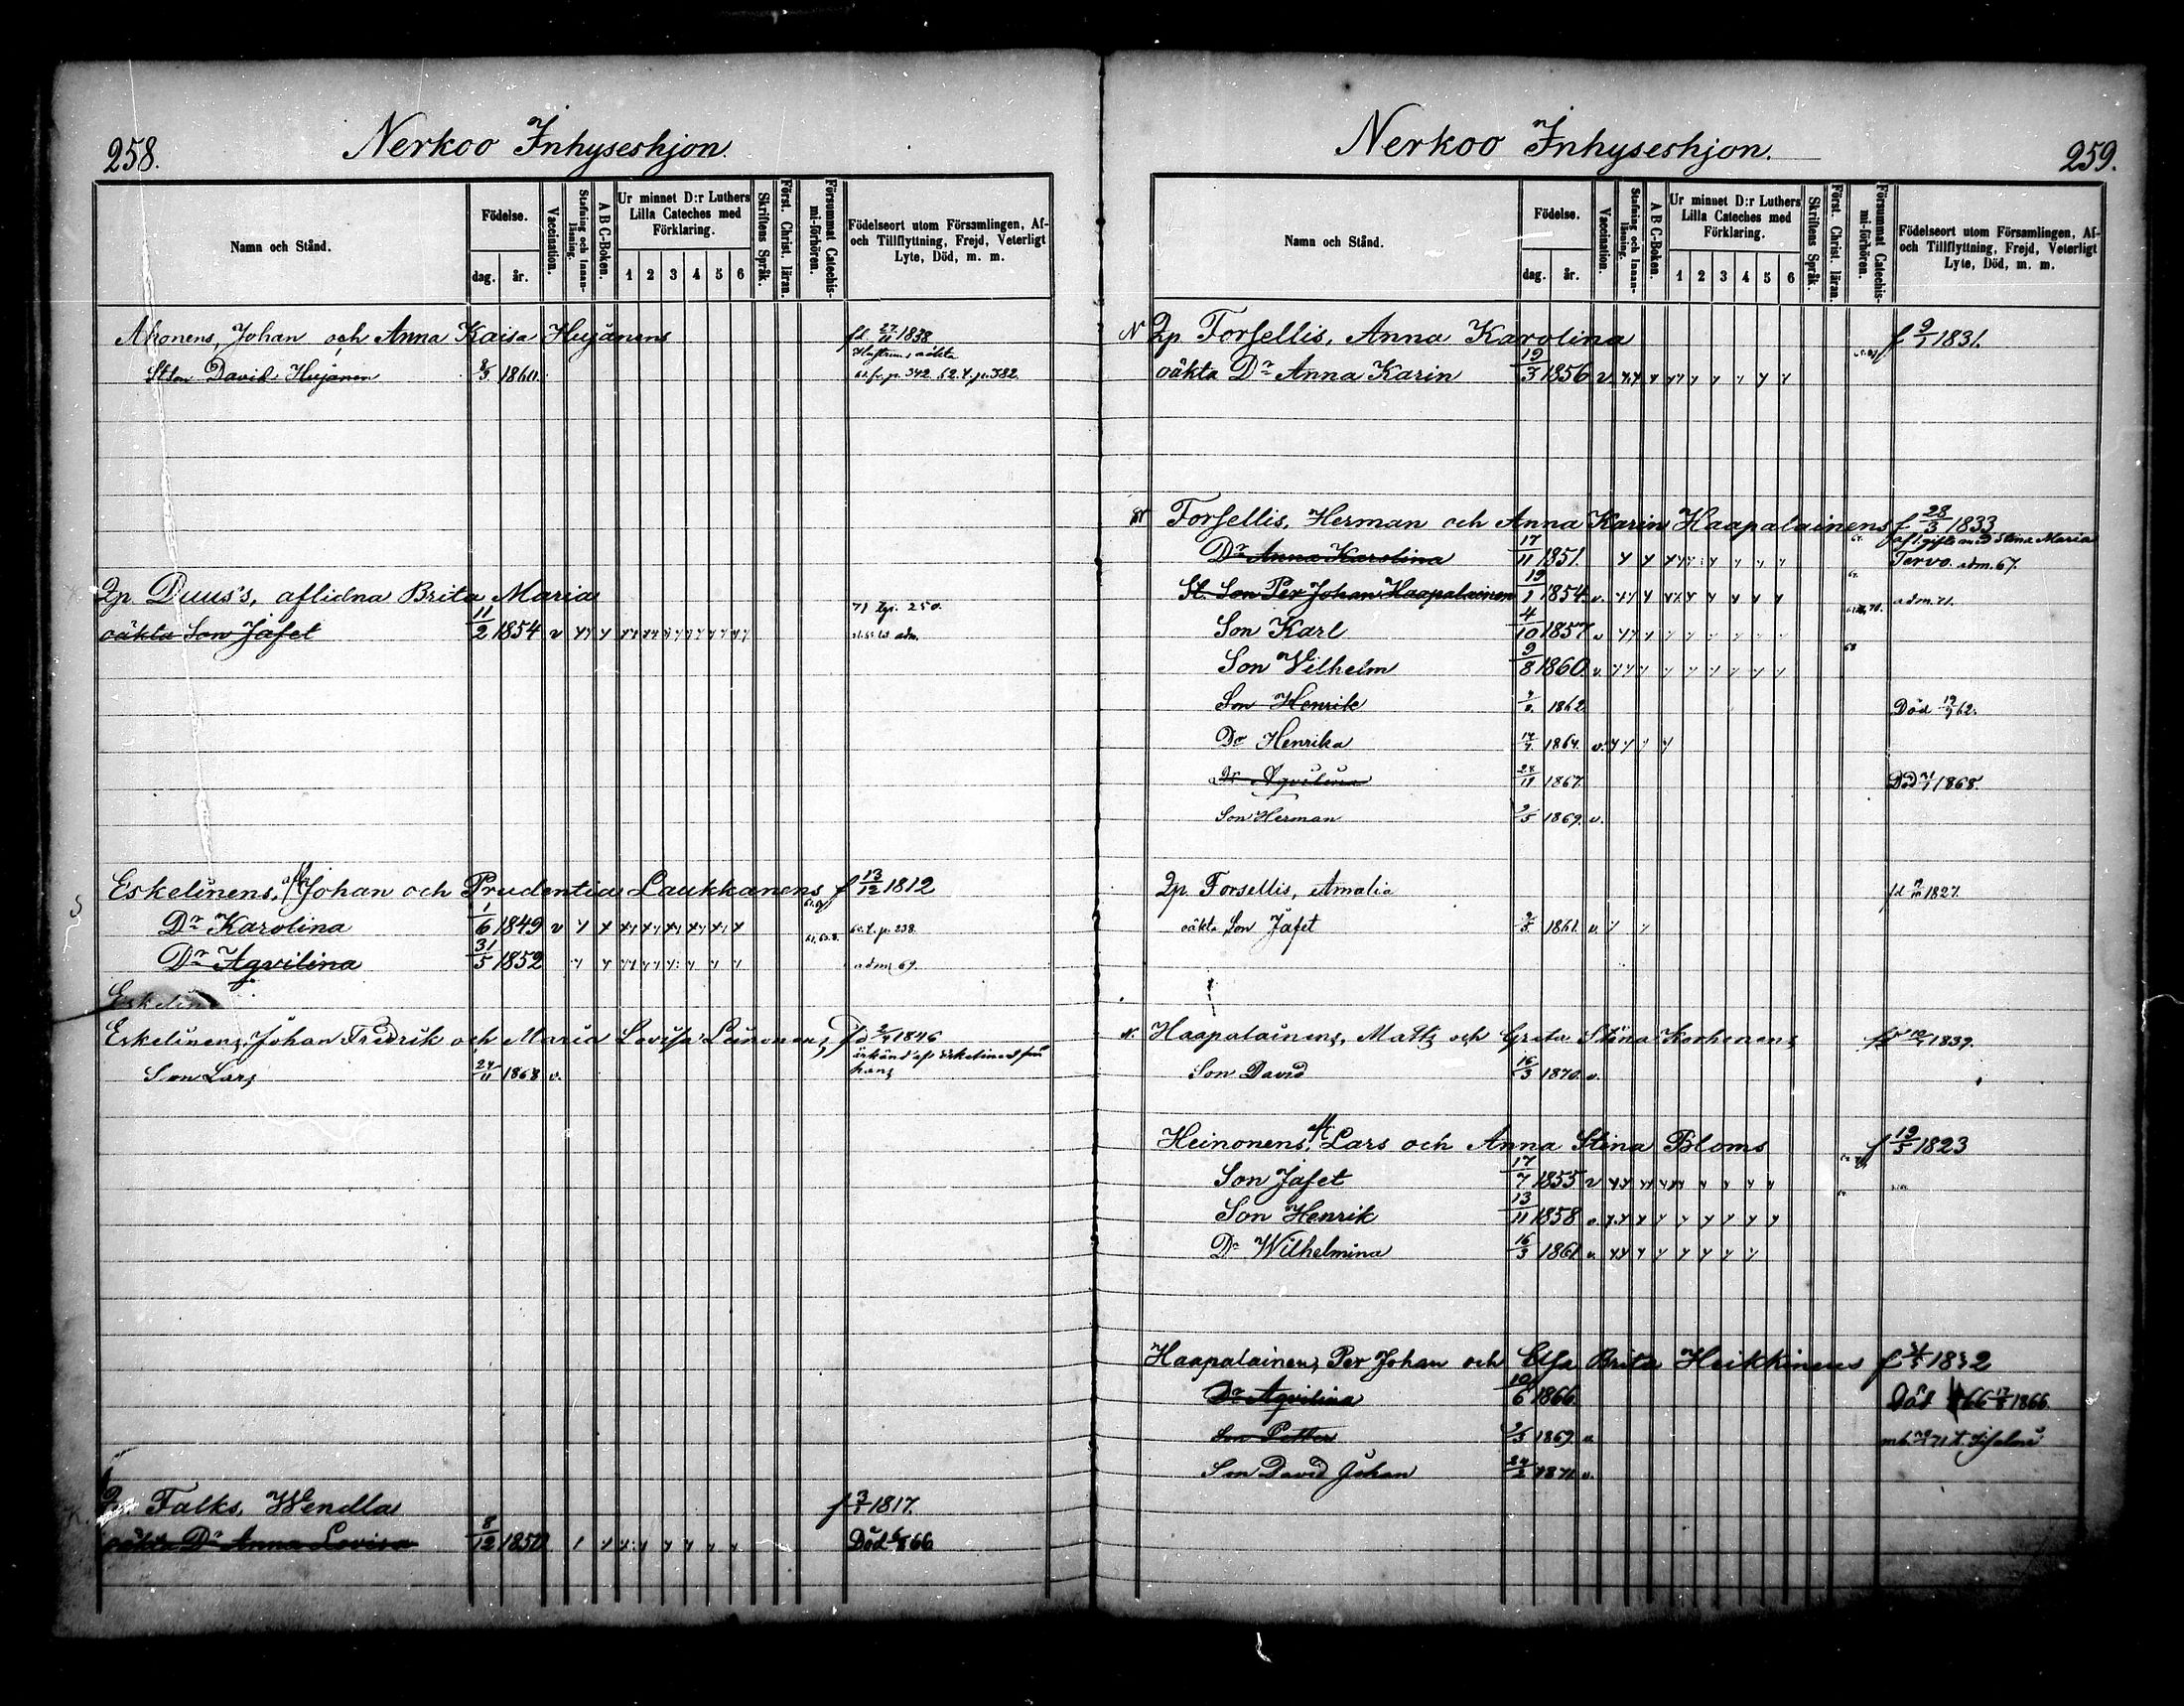 258.
Nerkoo Inhyseshjon.
Namn och Stånd.
Födelse.
dag. år.
Vaccination.
Stafning och Innan-läsning.
A B C-Boken.
Ur minnet D:r Luthers Lilla Cateches med Förklaring.
1 2 3 4 5 6
Skriftens Språk.
Först. Christ. läran.
Försummat Catechis-mi-förhören.
Födelseort utom Församlingen, Af- och Tillflyttning, Frejd, Veterligt Lyte, Död, m. m.
Ahonens, Johan och Anna Kaisa Hujanens fd 27/11 1838
David Hujanen 1860. 342. 62. t. p. 382.
Qp. Duus's, aflidna Brita Maria 71 250.
oäkta Son Jafet 11/2 1854 v
Eskelinens, Johan och Prudentia Laukkanens f 13/12 1812
Dr Karolina 1/6 1849 v 238.
Dr Aqvilina 31/5 1852 adm 69.
Eskelin
Eskelinens, Johan Fredrik och Maria Lovisa Leinonens, fd 1846
Son Lars 24/11 1868 v. hans
Qp. Falks, Wendla f 3/1 1817.
oäkta Dr Anna Lovisa 8/12 1850 Död 66
Nerkoo Inhyseshjon.
259.
Namn och Stånd.
Födelse.
dag. år.
Vaccination.
Stafning och Innan-läsning.
A B C-Boken.
Ur minnet D:r Luthers Lilla Cateches med Förklaring.
1 2 3 4 5 6
Skriftens Språk.
Först. Christ. läran.
Försummat Catechis-mi-förhören.
Födelseort utom Församlingen, Af- och Tillflyttning, Frejd, Veterligt Lyte, Död, m. m.
N Qp Forsellis, Anna Karolina f 9/1 1831.
oäkta Dr Anna Karin 19/3 1856 v
Forsellis, Herman och Anna Karin Haapalainens f 28/3 1833
Dr Anna Karolina 17/11 1851. gift med Stina Maria Tervo. adm. 67.
St. Son Per Johan Haapalainen 19/1 1854 v. adm. 71.
Son Karl 4/10 1857 v
Son Vilhelm 9/8 1860 v.
Son Henrik 1862 Död 62.
Dr Henrika 1864. v.
Dr Aqvilina 1867. Död 1868.
Son Herman 1869. v.
Qp. Forsellis, Amalia fd 1827.
oäkta Son Jafet 1861. v.
N. Haapalainens, Matts och Greta Stina Korhonens 1839.
Son David 16/3 1870. v.
Heinonens, Lars och Anna Stina Bloms f 19/5 1823
Son Jafet 17/7 1855 v
Son Henrik 13/11 1858
Dr Wilhelmina 16/3 1861
Haapalainens, Per Johan och Elsa Brita Heikkinens f
Dr Aqvilina 6 1866. Död 66 1866.
Son Petter 1869 v. 71 t.
Son David Johan 24/2 1871 v.